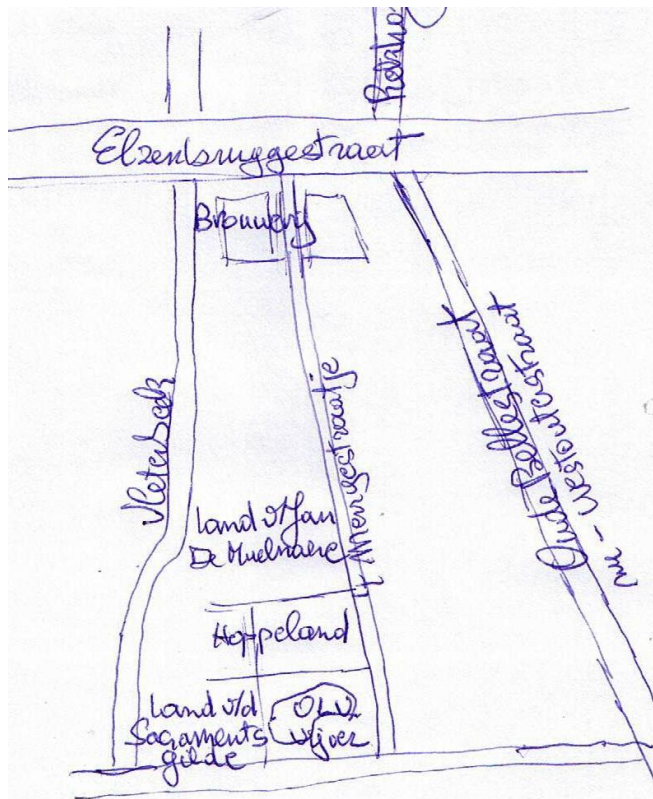 Elzenbruggestraat
Brouwerij
Vleterbeek
Oude Bellestraat
nu - Westoutrestraat
Land v Jan
De Muelnaere
Hoppeland
Land v/d
Sacraments
gilde
OLV
vijver